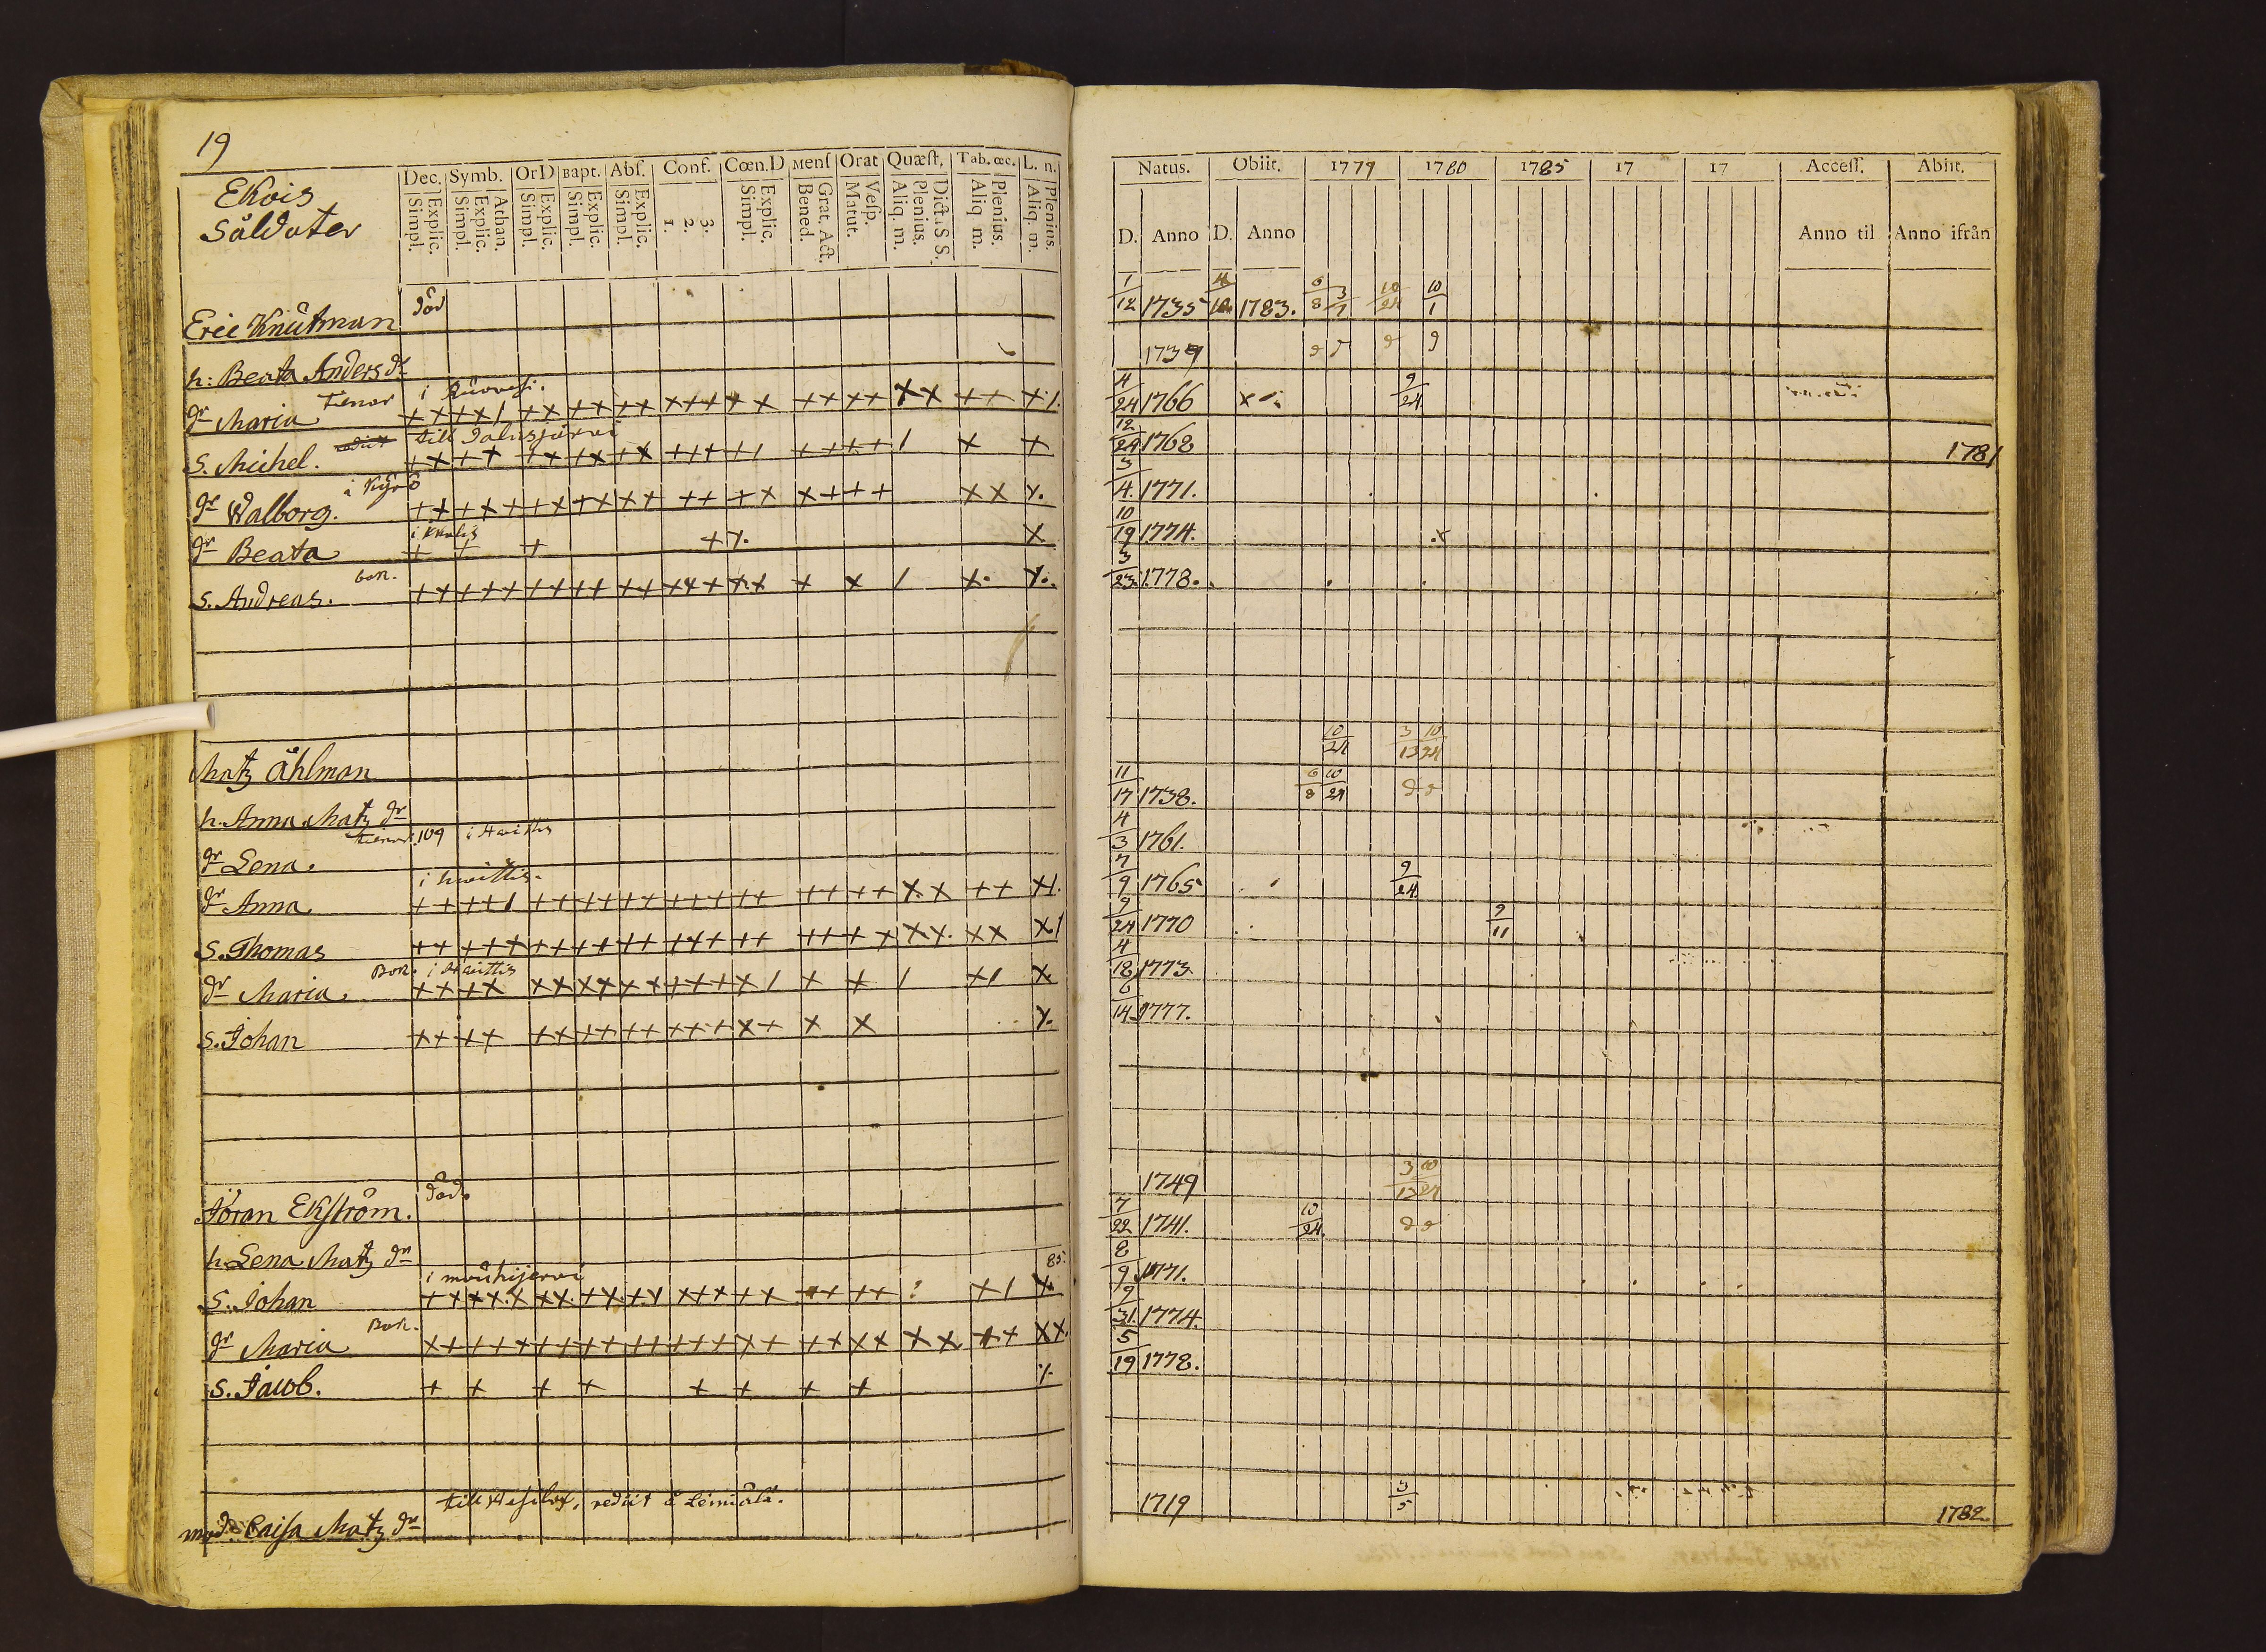 19
Ekois
Såldater
Dec. Symb. Or D Bapt. Abs. Conf. Cœn.D Mens Orat Quæst. Tab. œc. L. n.
Explic. Simpl. Athan. Explic. Simpl. Explic. Simpl. Explic. Simpl. Explic. Simpl. 3. 2. 1. Explic. Simpl. Grat. Act. Bened. Vesp. Matut. Dict. S S. Plenius. Aliq. m. Plenius. Aliq. m. Plenius. Aliq. m.
Eric Knutman död
h: Beata Anders dr
dr Maria Tienar i
S. Michel.
dr Walborg. i Kyrö
dr Beata
S. Andreas. bor.
Matz Åhlman
h. Anna Matz dr
dr Lena. 109 i Hvittis
dr Anna i Hvittis.
S. Thomas
dr Maria. Bor. i Hvittis
S. Johan
Jöran Ekström. död.
h. Lena Matz dr 85.
S. Johan i mouhijervi
dr Maria Bor.
S. Jacob.
mod. Caisa Matz dr till rediit å
Natus. Obiit. 1779 1780 1785 17 17 Access. Abiit.
D. Anno D. Anno Anno til Anno ifrån
1/12 1735 1783. 6/8 3/7 10/24 10/1
1739
4/24 1766 9/24
12/24 1768 1781
3/4. 1771.
10/19 1774.
3/23. 1778.
10/24 3/13 10/24
11/17 1738. 6/8 10/24
4/3 1761.
7/9 1765 9/24
9/24 1770 9/11
4/18 1773
6/14 1777.
1749 3/13 10/24
7/22 1741. 10/24.
8/9 1771.
9/31. 1774.
5/19 1778.
1719 3/5 1782.